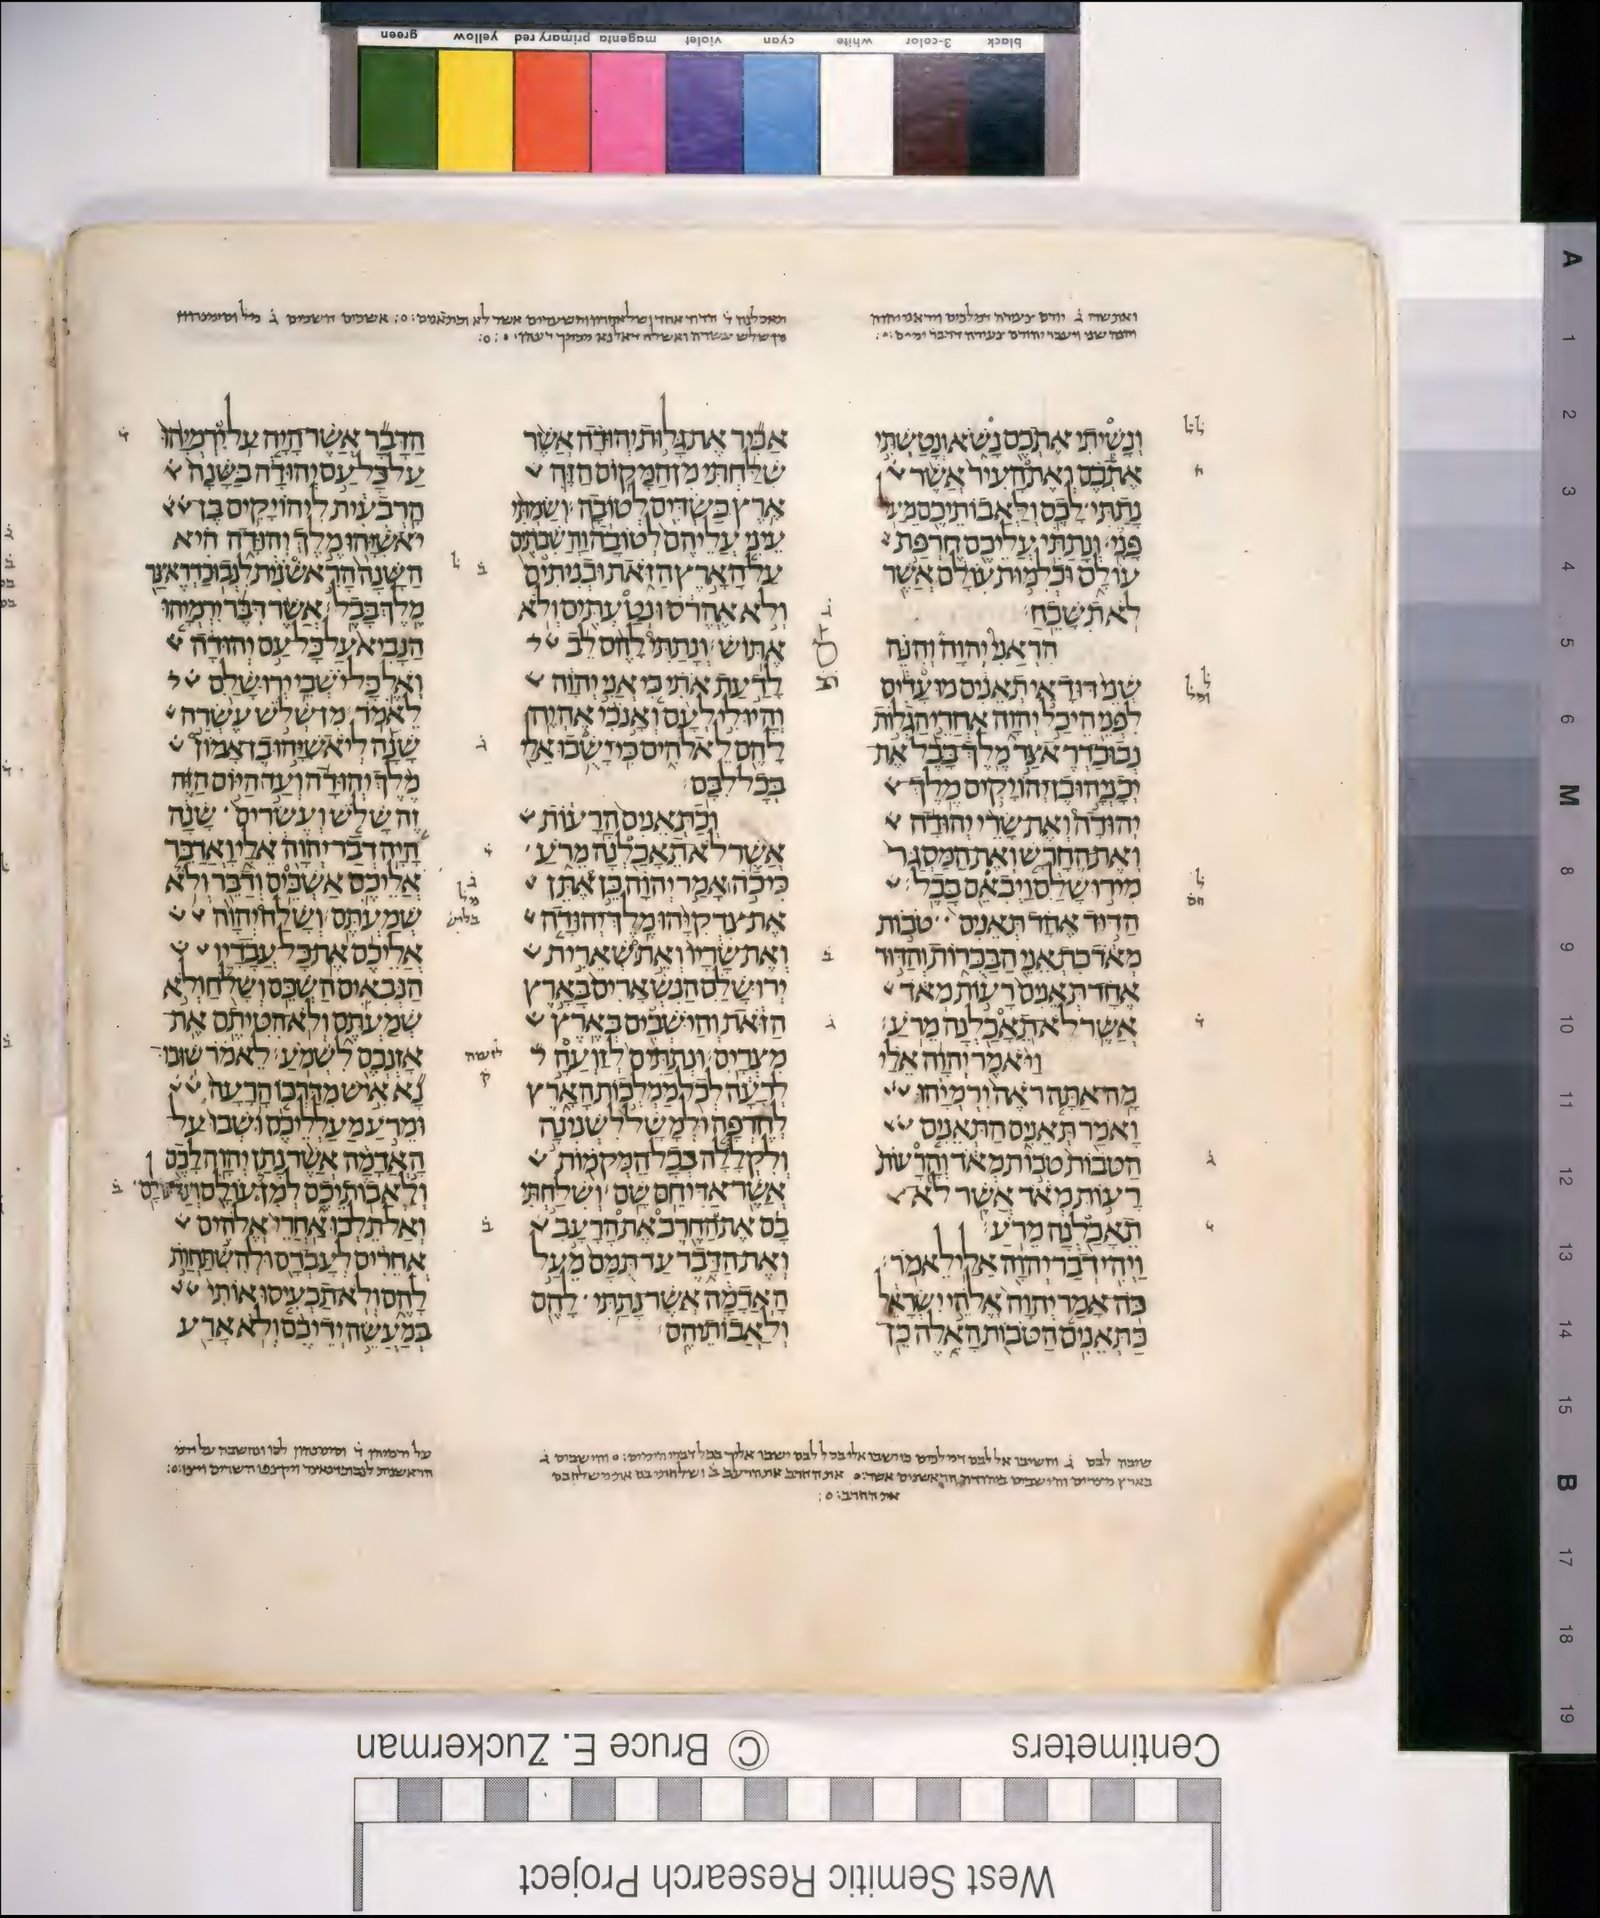 green yellow primary red magenta violet cyan white 3-color black
ונשיתי אתכם נשא ונטשתי
אתכם ואת העיר אשר
נתתי לכם ולאבותיכם מעל
פני ונתתי עליכם חרפת
עולם וכלמות עולם אשר
לא תשכח
הראני יהוה והנה
שני דודאי תאנים מועדים
לפני היכל יהוה אחרי הגלות
נבוכדראצר מלך בבל את
יכניהו בן יהויקים מלך
יהודה ואת שרי יהודה
ואת החרש ואת המסגר
מירושלם ויבאם בבל
הדוד אחד תאנים טבות
מאד כתאני הבכרות והדוד
אחד תאנים רעות מאד
אשר לא תאכלנה מרע
ויאמר יהוה אלי
מה אתה ראה ירמיהו
ואמר תאנים התאנים
הטבות טבות מאד והרעות
רעות מאד אשר לא
תאכלנה מרע
ויהי דבר יהוה אלי לאמר
כה אמר יהוה אלהי ישראל
כתאנים הטבות האלה כן
אכיר את גלות יהודה אשר
שלחתי מן המקום הזה
ארץ כשדים לטובה ושמתי
עיני עליהם לטובה והשבתים
על הארץ הזאת ובניתים
ולא אהרס ונטעתים ולא
אתוש ונתתי להם לב
לדעת אתי כי אני יהוה
והיו לי לעם ואנכי אהיה
להם לאלהים כי ישבו אלי
בכל לבם
וכתאנים הרעות
אשר לא תאכלנה מרע
כי כה אמר יהוה כן אתן
את צדקיהו מלך יהודה
ואת שריו ואת שארית
ירושלם הנשארים בארץ
הזאת והישבים בארץ
מצרים ונתתים לזועה
לרעה לכל ממלכות הארץ
לחרפה ולמשל לשנינה
ולקללה בכל המקמות
אשר אדיחם שם ושלחתי
בם את החרב את הרעב
ואת הדבר עד תמם מעל
האדמה אשר נתתי להם
ולאבותיהם
הדבר אשר היה על ירמיהו
על כל עם יהודה בשנה
הרבעית ליהויקים בן
יאשיהו מלך יהודה היא
השנה הראשנית לנבוכדראצר
מלך בבל אשר דבר ירמיהו
הנביא על כל עם יהודה
ואל כל ישבי ירושלם
לאמר מן שלש עשרה
שנה ליאשיהו בן אמון
מלך יהודה ועד היום הזה
זה שלש ועשרים שנה
היה דבר יהוה אלי ואדבר
אליכם אשכים ודבר ולא
שמעתם ושלח יהוה
אליכם את כל עבדיו
הנבאים השכם ושלח ולא
שמעתם ולא הטיתם את
אזנכם לשמע לאמר שובו
נא איש מדרכו הרעה
ומרע מעלליכם ושבו על
האדמה אשר נתן יהוה לכם
ולאבותיכם למן עולם ועד עולם
ואל תלכו אחרי אלהים
אחרים לעבדם ולהשתחות
להם ולא תכעיסו אותי
במעשה ידיכם ולא ארע
A
1
2
3
4
5
6
M
8
9
10
11
12
13
14
15
B
17
18
19
Centimeters
© Bruce E. Zuckerman
West Semitic Research Project